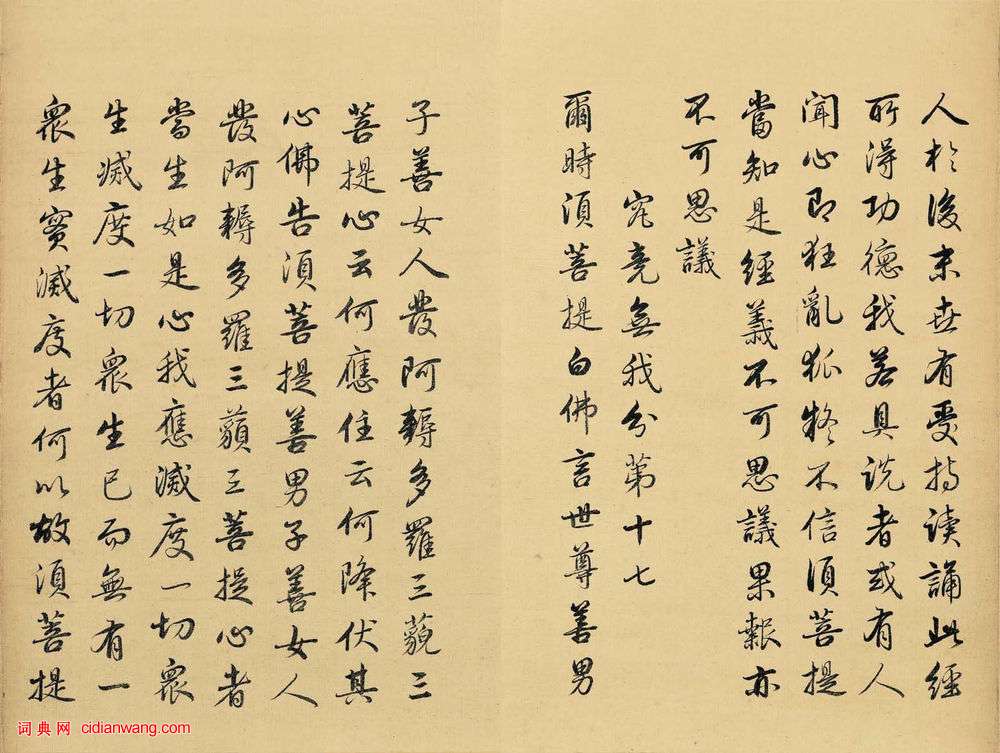 人於後末世有受持读誦此經
所得功德我若具说者或有人
聞心即狂亂狐疑不信須菩提
當知是經義不可思議果報亦
不可思議
究竟無我分第十七
爾時須菩提白佛言世尊善男
子善女人發阿耨多羅三藐三
菩提心云何應住云何降伏其
心佛告須菩提善男子善女人
發阿耨多羅三藐三菩提心者
當生如是心我應滅度一切眾
生滅度一切眾生已而無有一
眾生實滅度者何以故須菩提
词典网 cidianwang.com